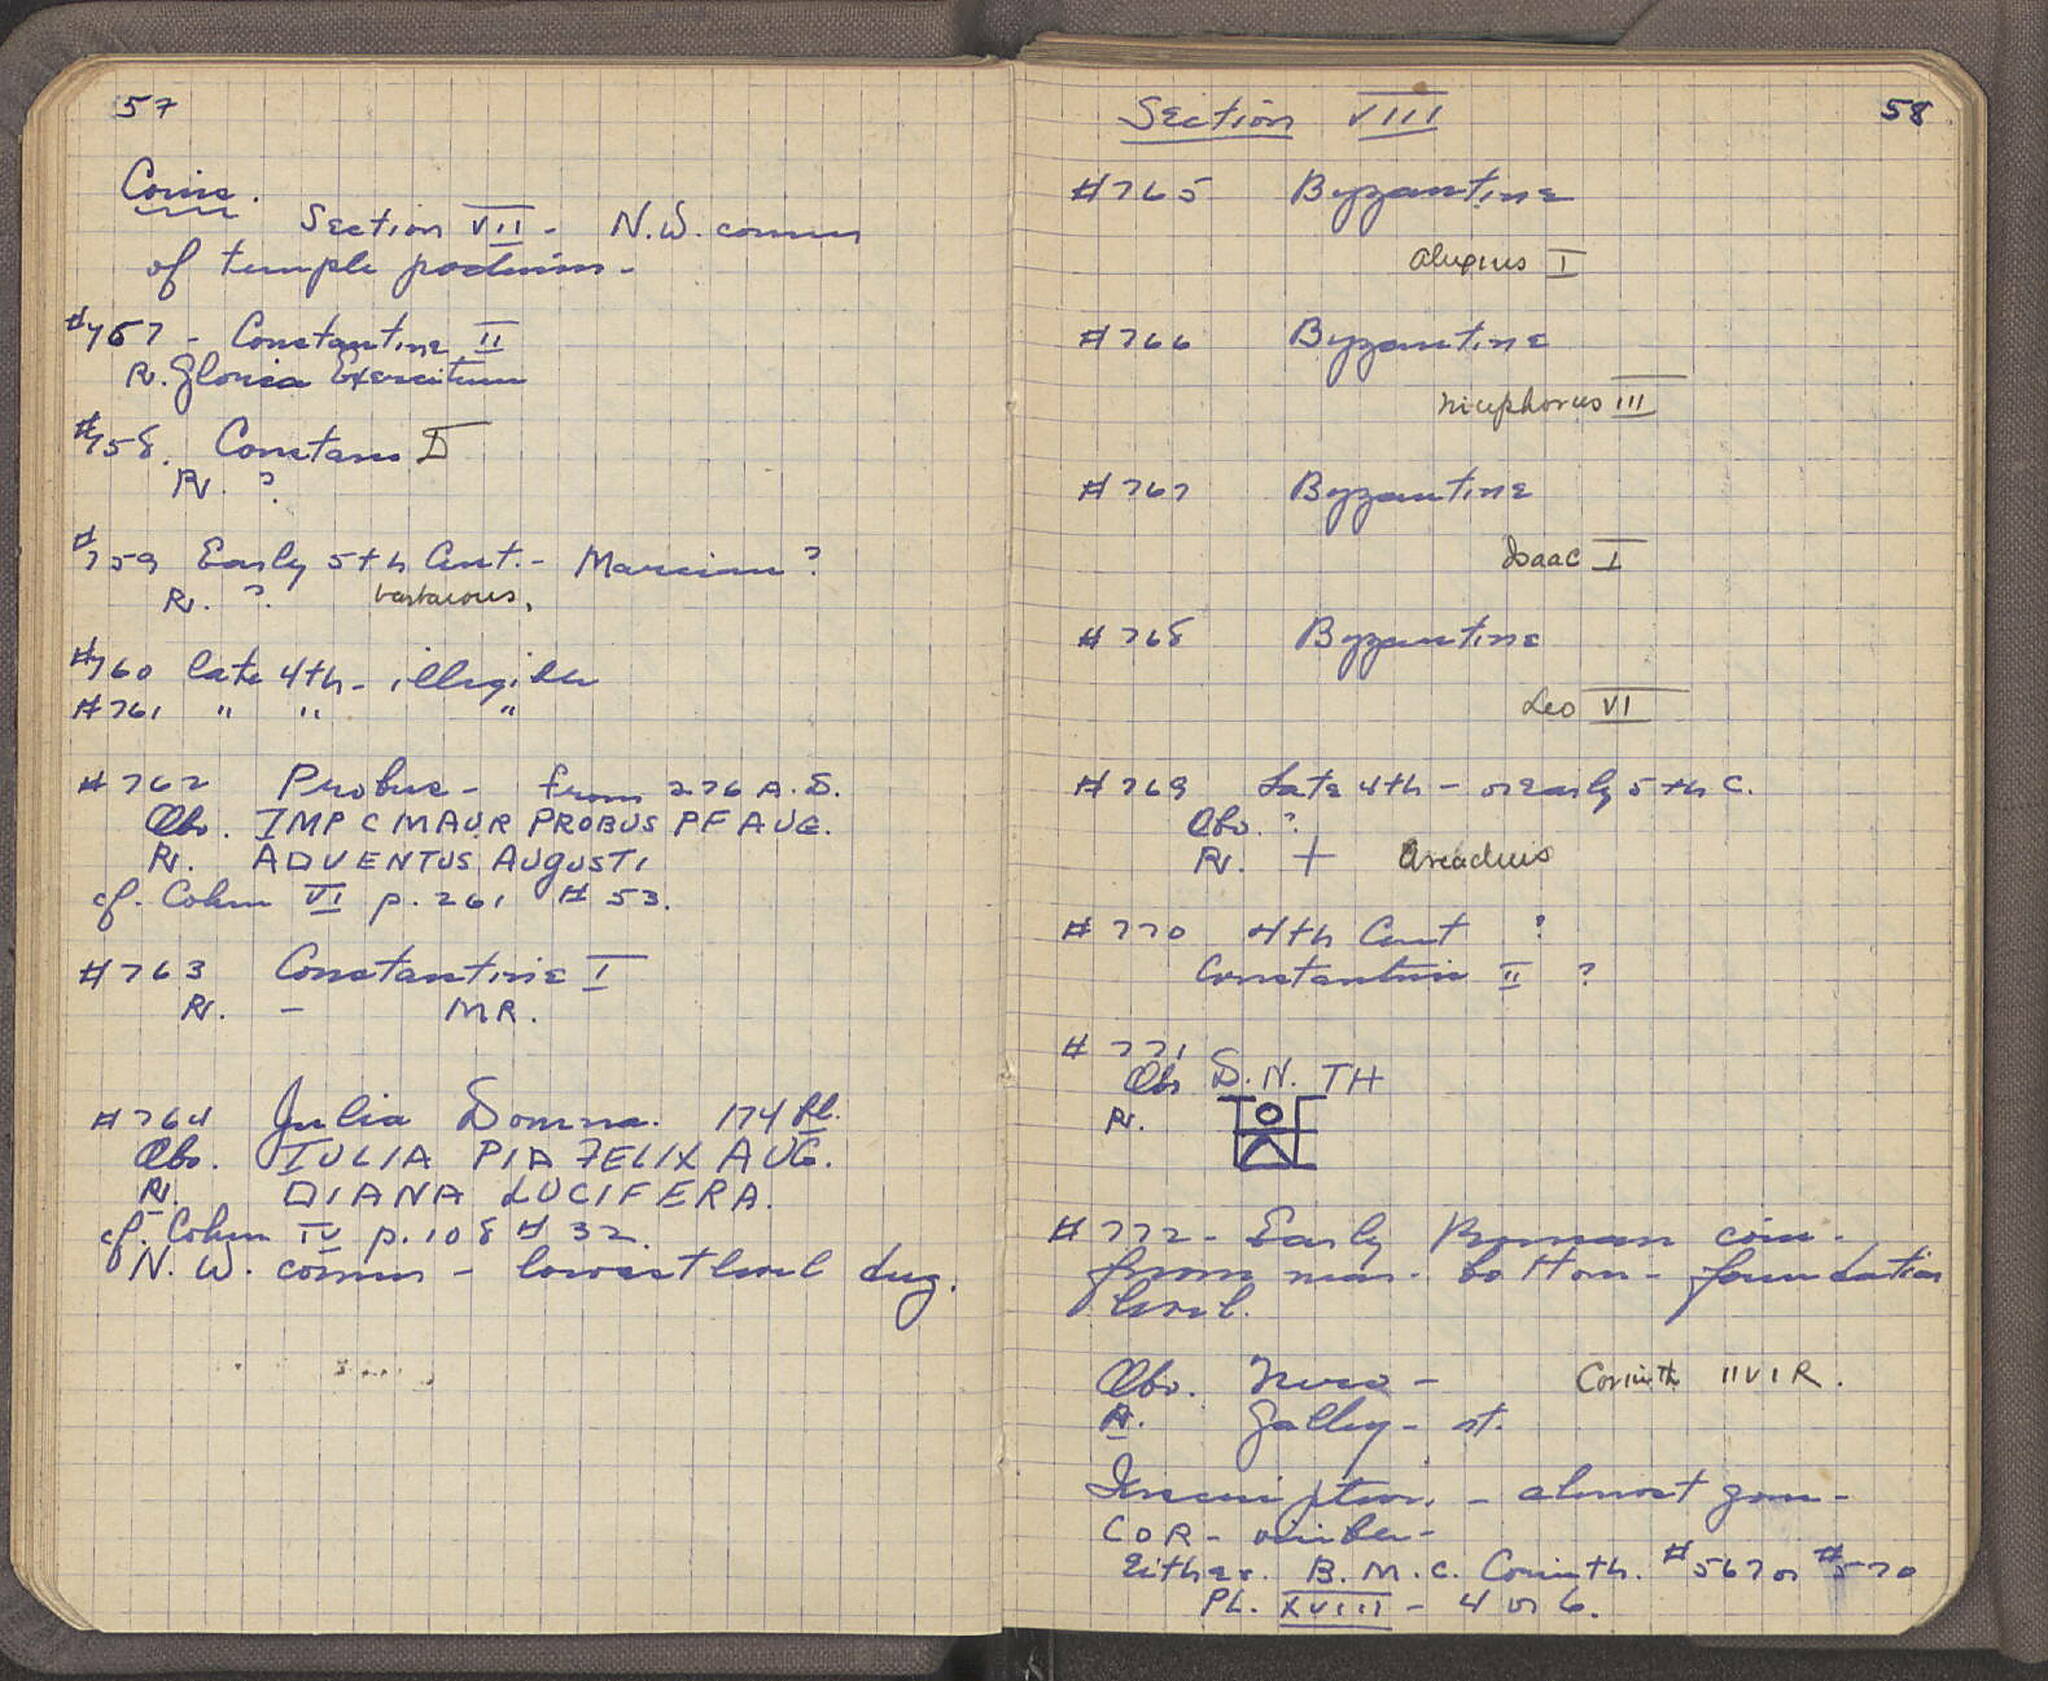 57
Coins.
Section VII - N.W. corner
of temple podium -
#757 - Constantine II
R. Gloria Exercitum
#758. Constans II
Rv. ?
#759 Early 5th Cent. - Marcian?
Rv. ? barbarous.
#760 late 4th - illegible
#761 " " "
#762 Probus - from 276 A.D.
Obv. IMP C M AUR PROBUS PF AUG.
Rv. ADVENTUS AUGUSTI
cf. Cohen VI p. 261 #53.
#763 Constantine I
Rv. - MR.
#764 Julia Domna. 174 Pl.
Obv. IULIA PIA FELIX AUG.
Rv. DIANA LUCIFERA.
cf. Cohen IV p. 108 #32.
N.W. corner - lowest level dug.
Section VIII 58
#765 Byzantine
Alexius I
#766 Byzantine
Nicephorus III
#767 Byzantine
Isaac I
#768 Byzantine
Leo VI
#769 Late 4th - or early 5th C.
Obv. ?
Rv. + Arcadius
#770 4th Cent ?
Constantine II ?
#771
Obv D.N. TH
Rv.
#772 - Early Roman coin -
from near bottom - foundation
level.
Obv. Nero - Corinth IIVIR.
R. Galley - rt.
Inscription. - almost gone -
COR - visible -
Either. B.M.C. Corinth. #567 or #570
PL. XVIII - 4 or 6.